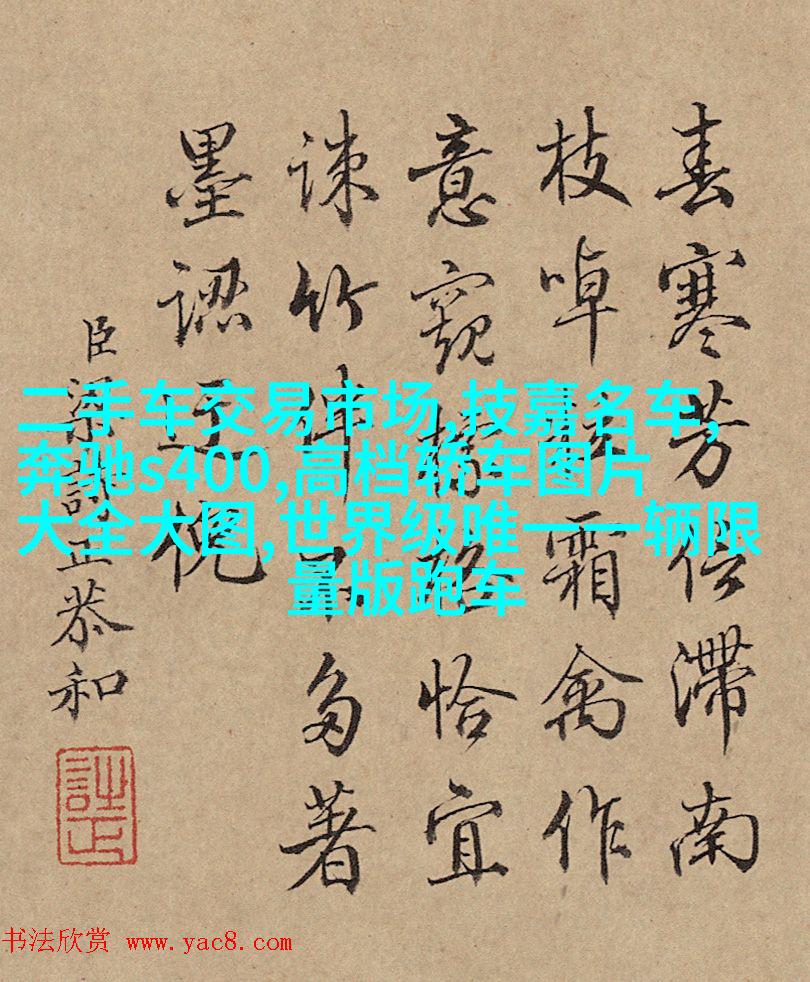 春寒芳信滯南
枝啅霜禽作
意窺恰宜
疎竹伴多著
墨
臣梁詩正恭和
二手车交易市场,技嘉名车,
奔驰s400,高档轿车图片
大全大图,世界级唯一一辆限
量版跑车
书法欣赏 www.yac8.com